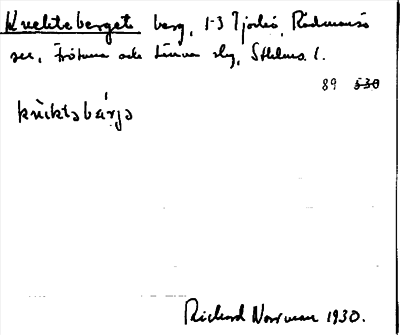 Knektsberget berg, 1-3 Tjockö, Rådmansö
sn, Frötuna och Länna slg, Sthlms l.
89 530
knìktsbárjə
Richard Norrman 1930.